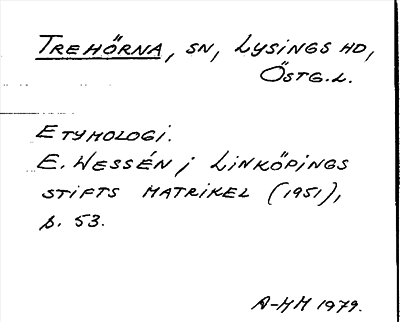 TREHÖRNA, SN, LYSINGS HD,
ÖSTG.L.
ETYMOLOGI.
E. WESSÉN i LINKÖPINGS
STIFTS MATRIKEL (1951),
p. 53.
A-MM 1979.